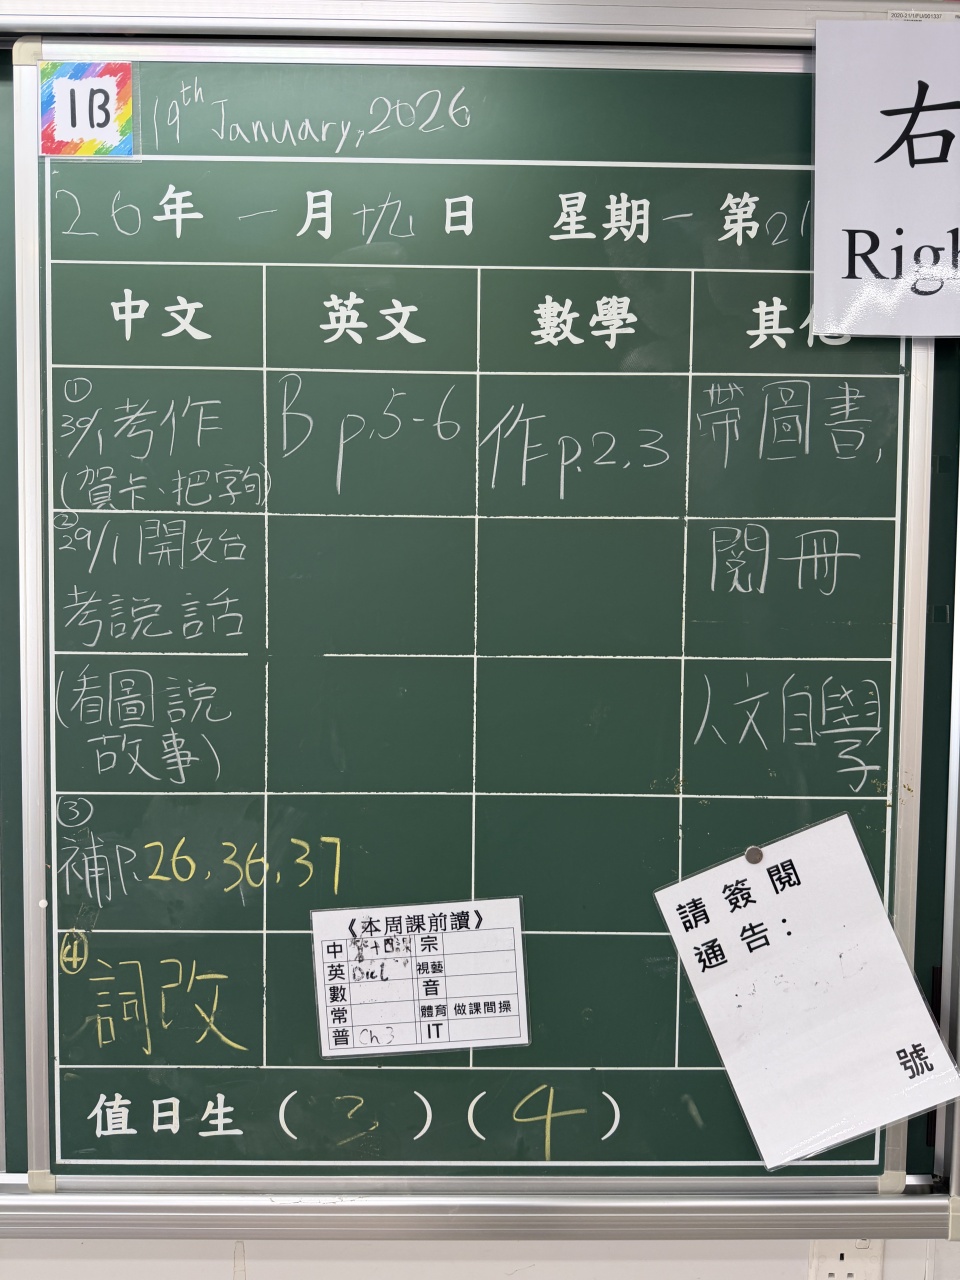 1B
19th January, 2026
26年 一月十九日 星期一 第21
右
Righ
中文 英文 數學 其他
① 30/1考作
(賀卡、把字句)
B p.5-6
作p.2,3
帶圖書,
② 29/1開始
考說話
閱冊
(看圖說
故事)
人文自學
③
補P.26,36,37
④
詞改
《本周課前讀》
中 宗
英 Dict 視藝
數 音
常 體育 做課間操
普 Ch 3 IT
請簽閱
通告:
號
值日生(3)(4)